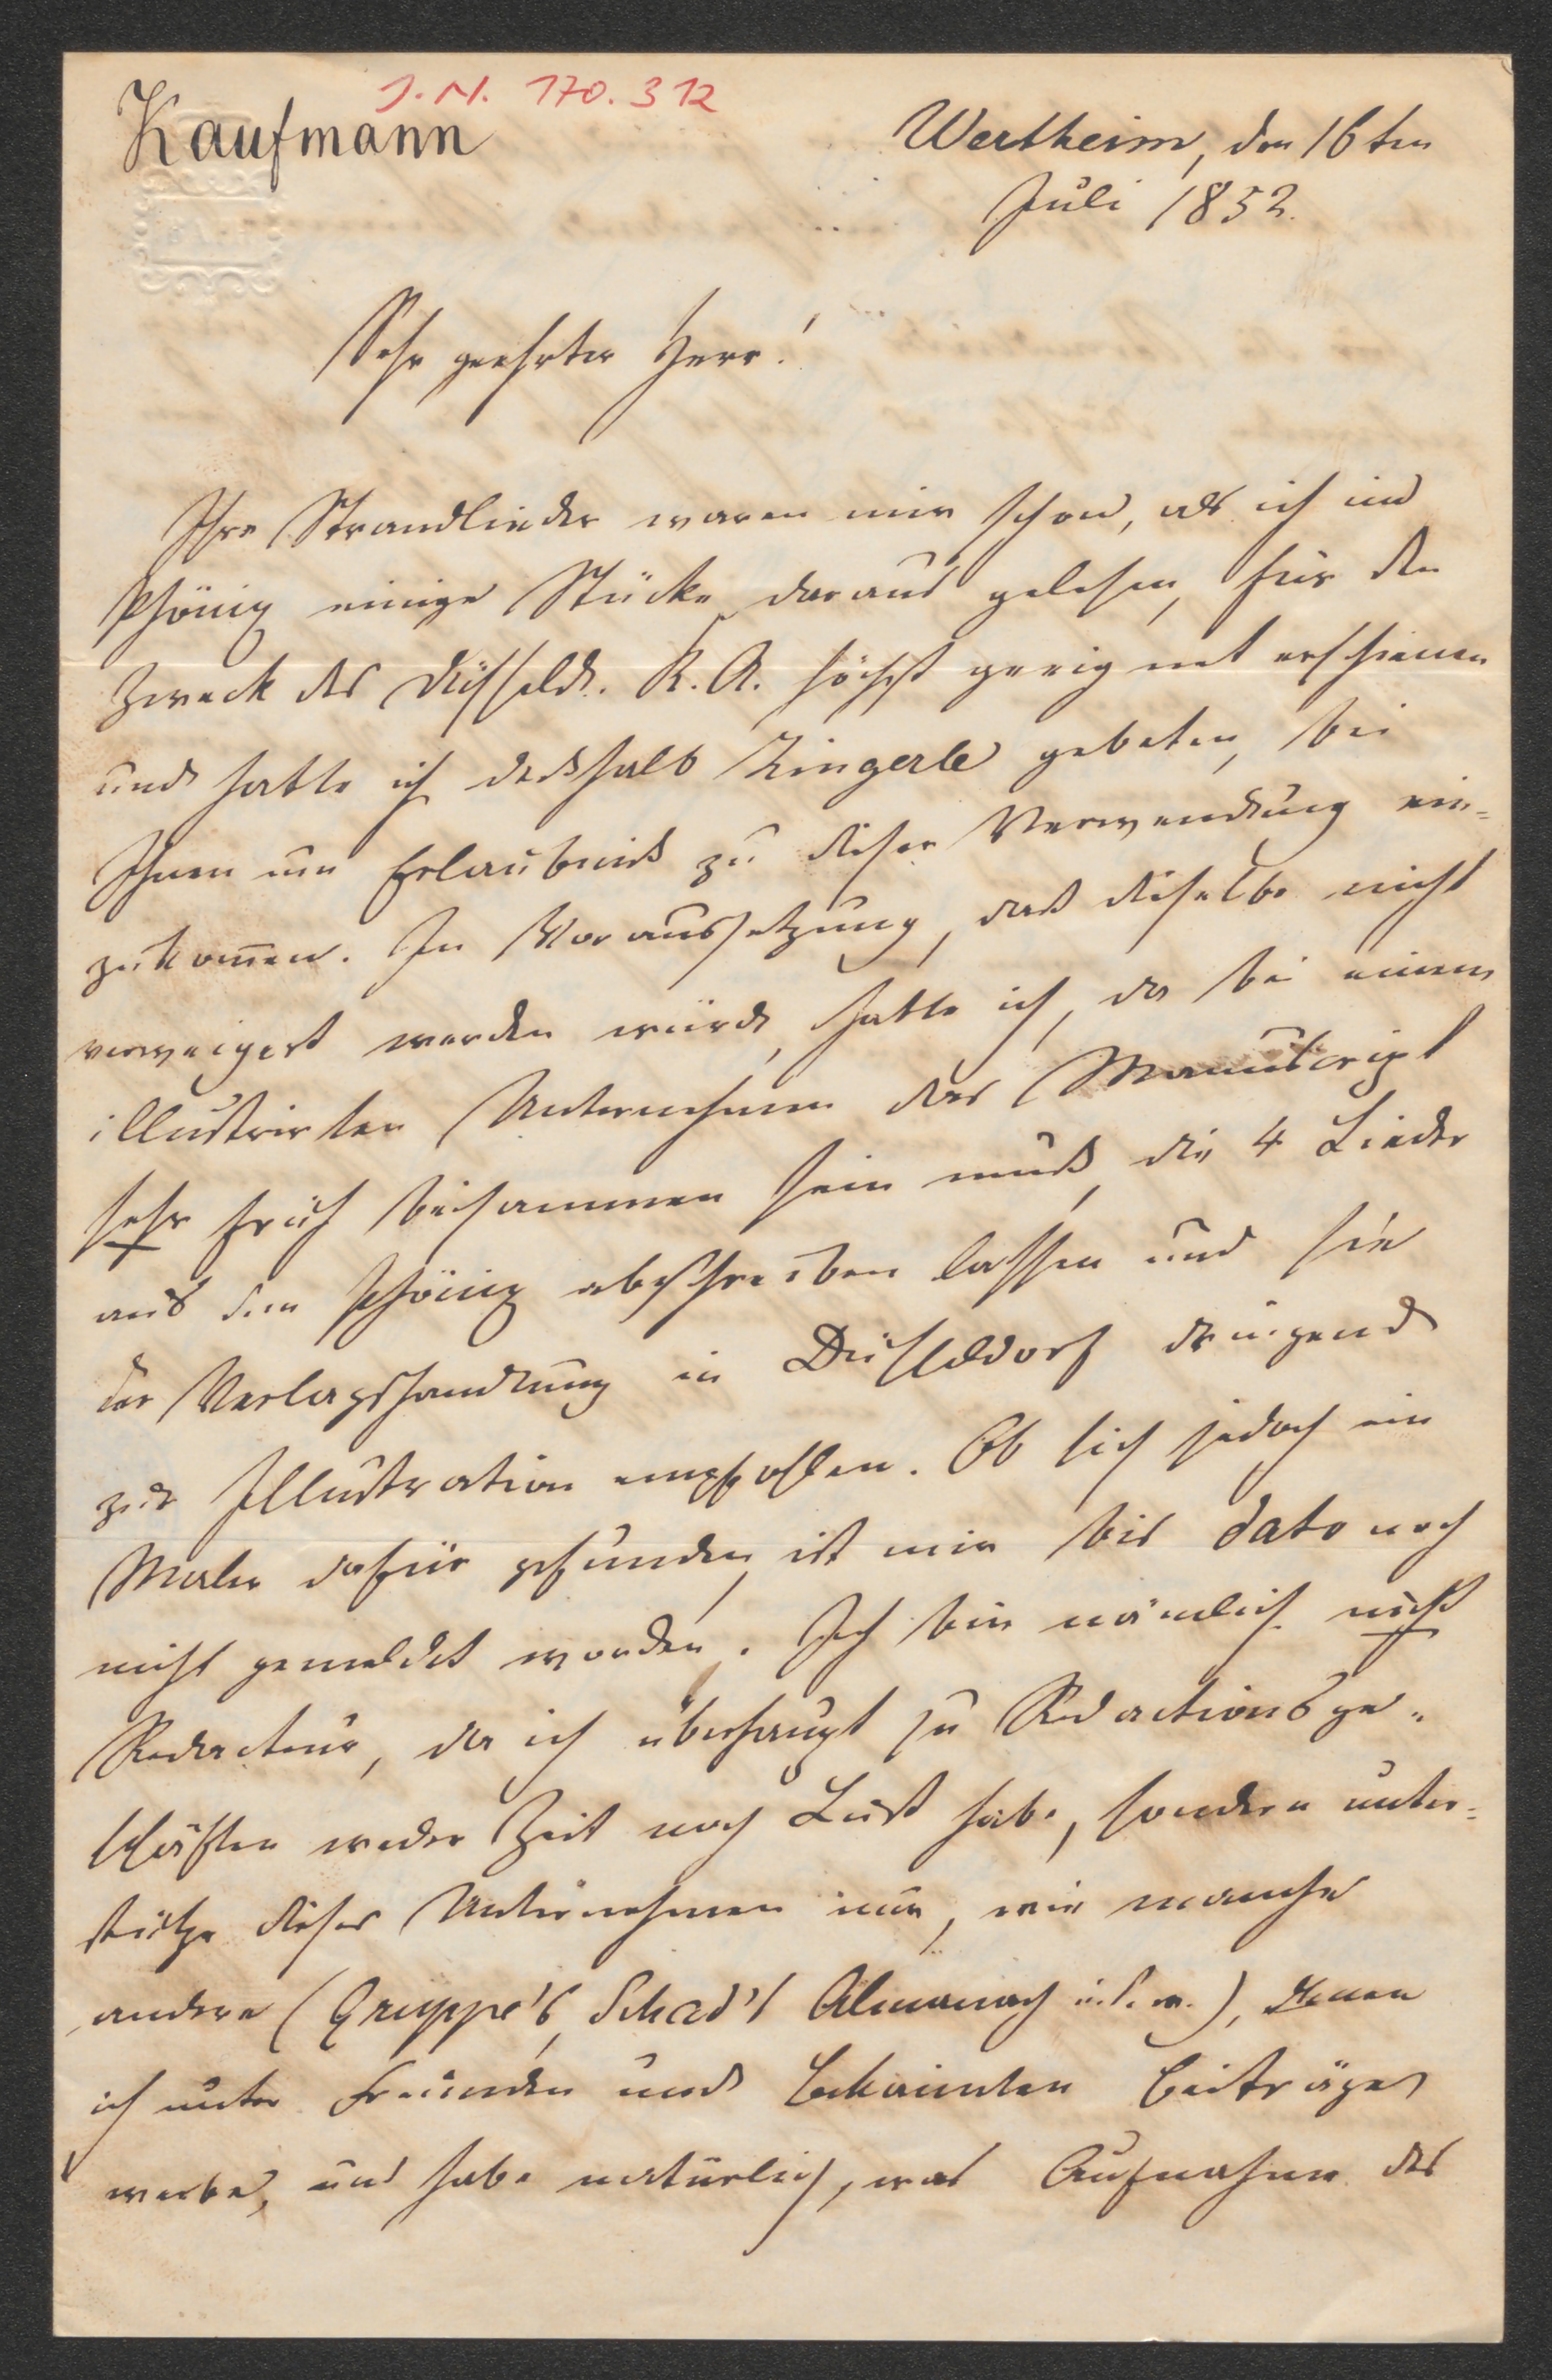 J. N. 170.312
Kaufmann
Wertheim, den 16ten
Juli 1852.
Sehr geehrter Herr!
Ihre Strandlieder waren mir schon, als ich im
Phönix einige Stücke daraus gelesen, für den
Zweck des Düsseld. K. A. höchst geeignet erschienen
und hatte ich deßhalb Zingerle gebeten, bei
Ihnen um Erlaubniß zu dieser Verwendung ein-
zukommen. In Voraussetzung, daß dieselbe nicht
verweigert werden würde, hatte ich, da bei einem
illustrirten Unternehmen das Manuscript
sehr früh beisammen sein muß, die 4 Lieder
aus dem Phönix abschreiben lassen und sie
der Verlagshandlung in Düsseldorf dringend
zur Illustration empfohlen. Ob sich jedoch ein
Maler dafür gefunden, ist mir bis dato noch
nicht gemeldet worden. Ich bin nämlich nicht
Redacteur, da ich überhaupt zu Redactionsge-
schäften weder Zeit noch Lust habe, sondern unter-
stütze dieses Unternehmen nur, wie manche
andere (Gruppe's, Schad's Almanach u. s. w.), denen
ich unter Freunden und Bekannten Beiträge
werbe, und habe natürlich, was Aufnahme des